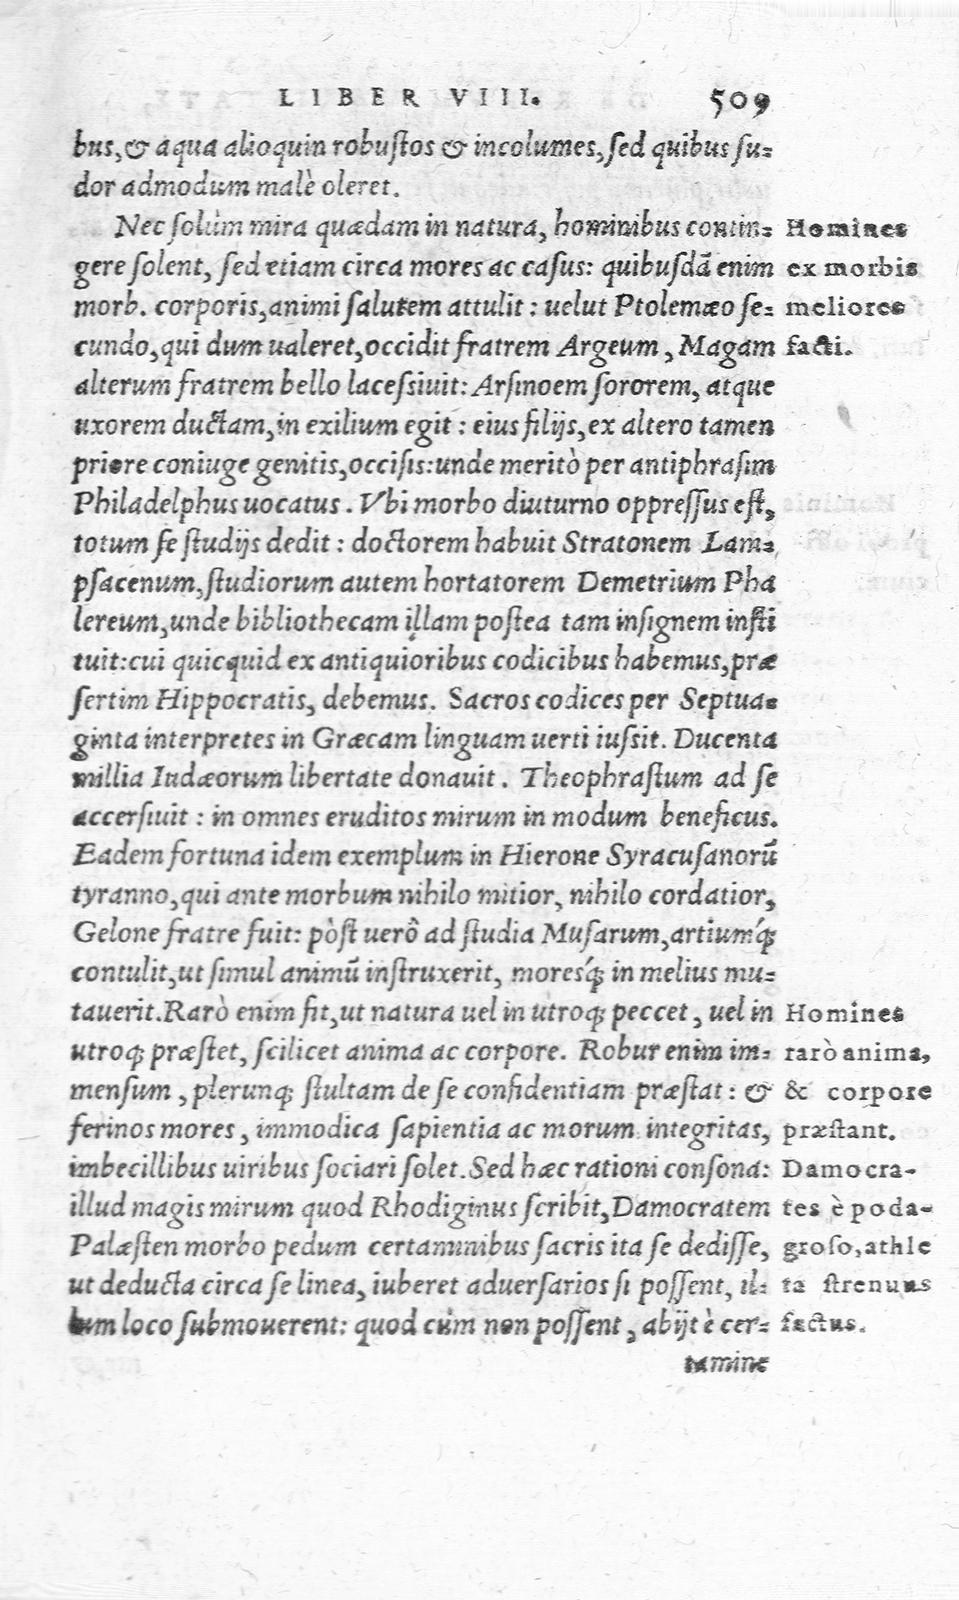 LIBER VIII. 509
bus, & aqua alioquin robustos & incolumes, sed quibus su-
dor admodum malè oleret.
Nec solùm mira quædam in natura, hominibus contin-
gere solent, sed etiam circa mores ac casus: quibusdã enim
morb. corporis, animi salutem attulit: uelut Ptolemæo se-
cundo, qui dum ualeret, occidit fratrem Argeum, Magam
alterum fratrem bello lacessiuit: Arsinoem sororem, atque
uxorem ductam, in exilium egit: eius filijs, ex altero tamen
priore coniuge genitis, occisis: unde meritò per antiphrasim
Philadelphus uocatus. Vbi morbo diuturno oppressus est,
totum se studijs dedit: doctorem habuit Stratonem Lam-
psacenum, studiorum autem hortatorem Demetrium Pha
lereum, unde bibliothecam illam postea tam insignem insti
tuit: cui quicquid ex antiquioribus codicibus habemus, præ
sertim Hippocratis, debemus. Sacros codices per Septua-
ginta interpretes in Græcam linguam uerti iussit. Ducenta
millia Iudæorum libertate donauit. Theophrastum ad se
accersiuit: in omnes eruditos mirum in modum beneficus.
Eadem fortuna idem exemplum in Hierone Syracusanorũ
tyranno, qui ante morbum nihilo mitior, nihilo cordatior,
Gelone fratre fuit: pòst uerô ad studia Musarum, artiumq́;
contulit, ut simul animũ instruxerit, moresq́; in melius mu-
tauerit. Rarò enim fit, ut natura uel in utroq; peccet, uel in
utroq; præstet, scilicet anima ac corpore. Robur enim im-
mensum, plerunq; stultam de se confidentiam præstat: &
ferinos mores, immodica sapientia ac morum integritas,
imbecillibus uiribus sociari solet. Sed hæc rationi consona:
illud magis mirum quod Rhodiginus scribit, Damocratem
Palæsten morbo pedum certaminibus sacris ita se dedisse,
ut deducta circa se linea, iuberet aduersarios si possent, il-
lum loco submouerent: quod cùm non possent, abijt è cer-
tamine
Homines
ex morbis
meliores
facti.
Homines
rarò anima,
& corpore
præstant.
Damocra-
tes è poda-
groso, athle
ta strenuus
factus.